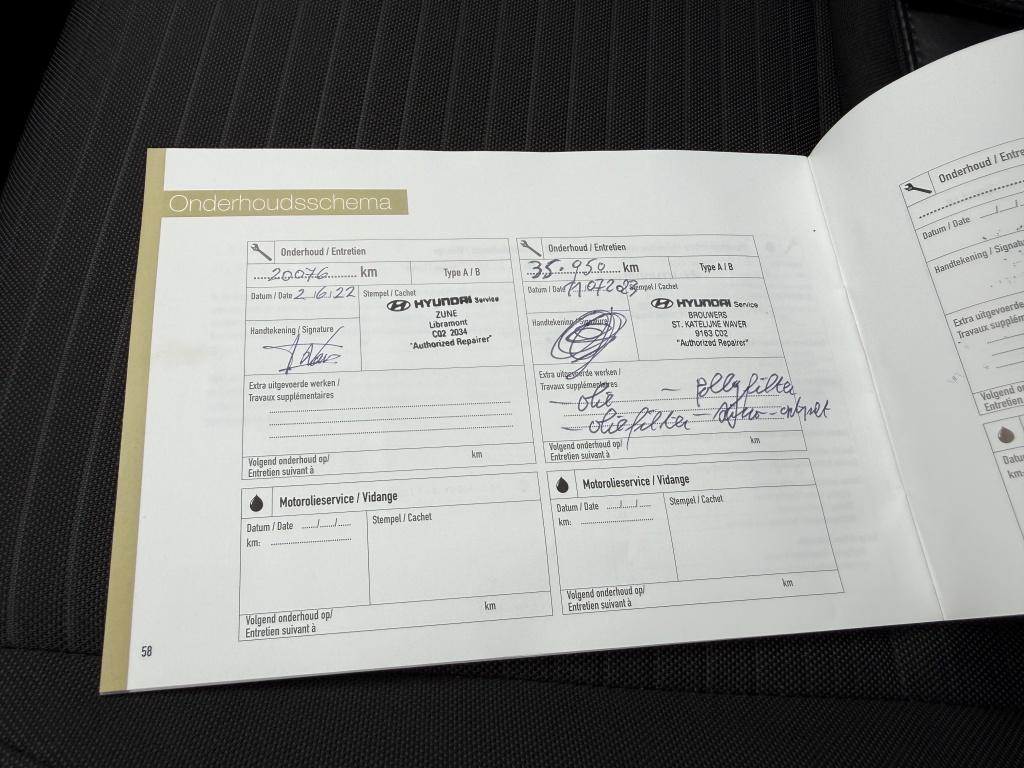 Onderhoudsschema
Onderhoud / Entretien
20076 km
Type A / B
Datum / Date 2.6.22
Stempel / Cachet
HYUNDAI Service
ZUNE
Libramont
C02 2034
"Authorized Repairer"
Handtekening / Signature
Extra uitgevoerde werken /
Travaux supplémentaires
Volgend onderhoud op/ km
Entretien suivant à
Onderhoud / Entretien
35.950 km
Type A / B
Datum / Date 11.07.2023
Stempel / Cachet
HYUNDAI Service
BROUWERS
ST. KATELIJNE WAVER
9163 C02
"Authorized Repairer"
Handtekening / Signature
Extra uitgevoerde werken /
Travaux supplémentaires
- olie - pollyfilter
- oliefilter -
Volgend onderhoud op/ km
Entretien suivant à
Motorolieservice / Vidange
Datum / Date ....../....../......
km:
Stempel / Cachet
Volgend onderhoud op/ km
Entretien suivant à
Motorolieservice / Vidange
Datum / Date ....../....../......
km:
Stempel / Cachet
Volgend onderhoud op/ km
Entretien suivant à
58
Onderhoud / Entre
Datum / Date
Handtekening / Signatu
Extra uitgevoerde
Travaux supplém
Volgend
Entretien
Datu
km: